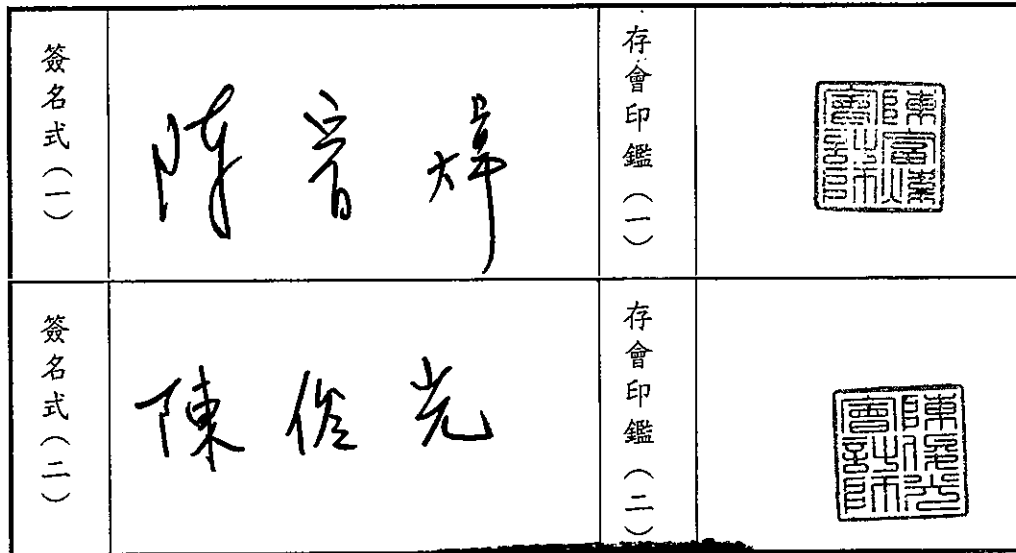 簽名式(一)
陳富煒
存會印鑑(一)
陳富煒
會計師
簽名式(二)
陳俊光
存會印鑑(二)
陳俊光
會計師